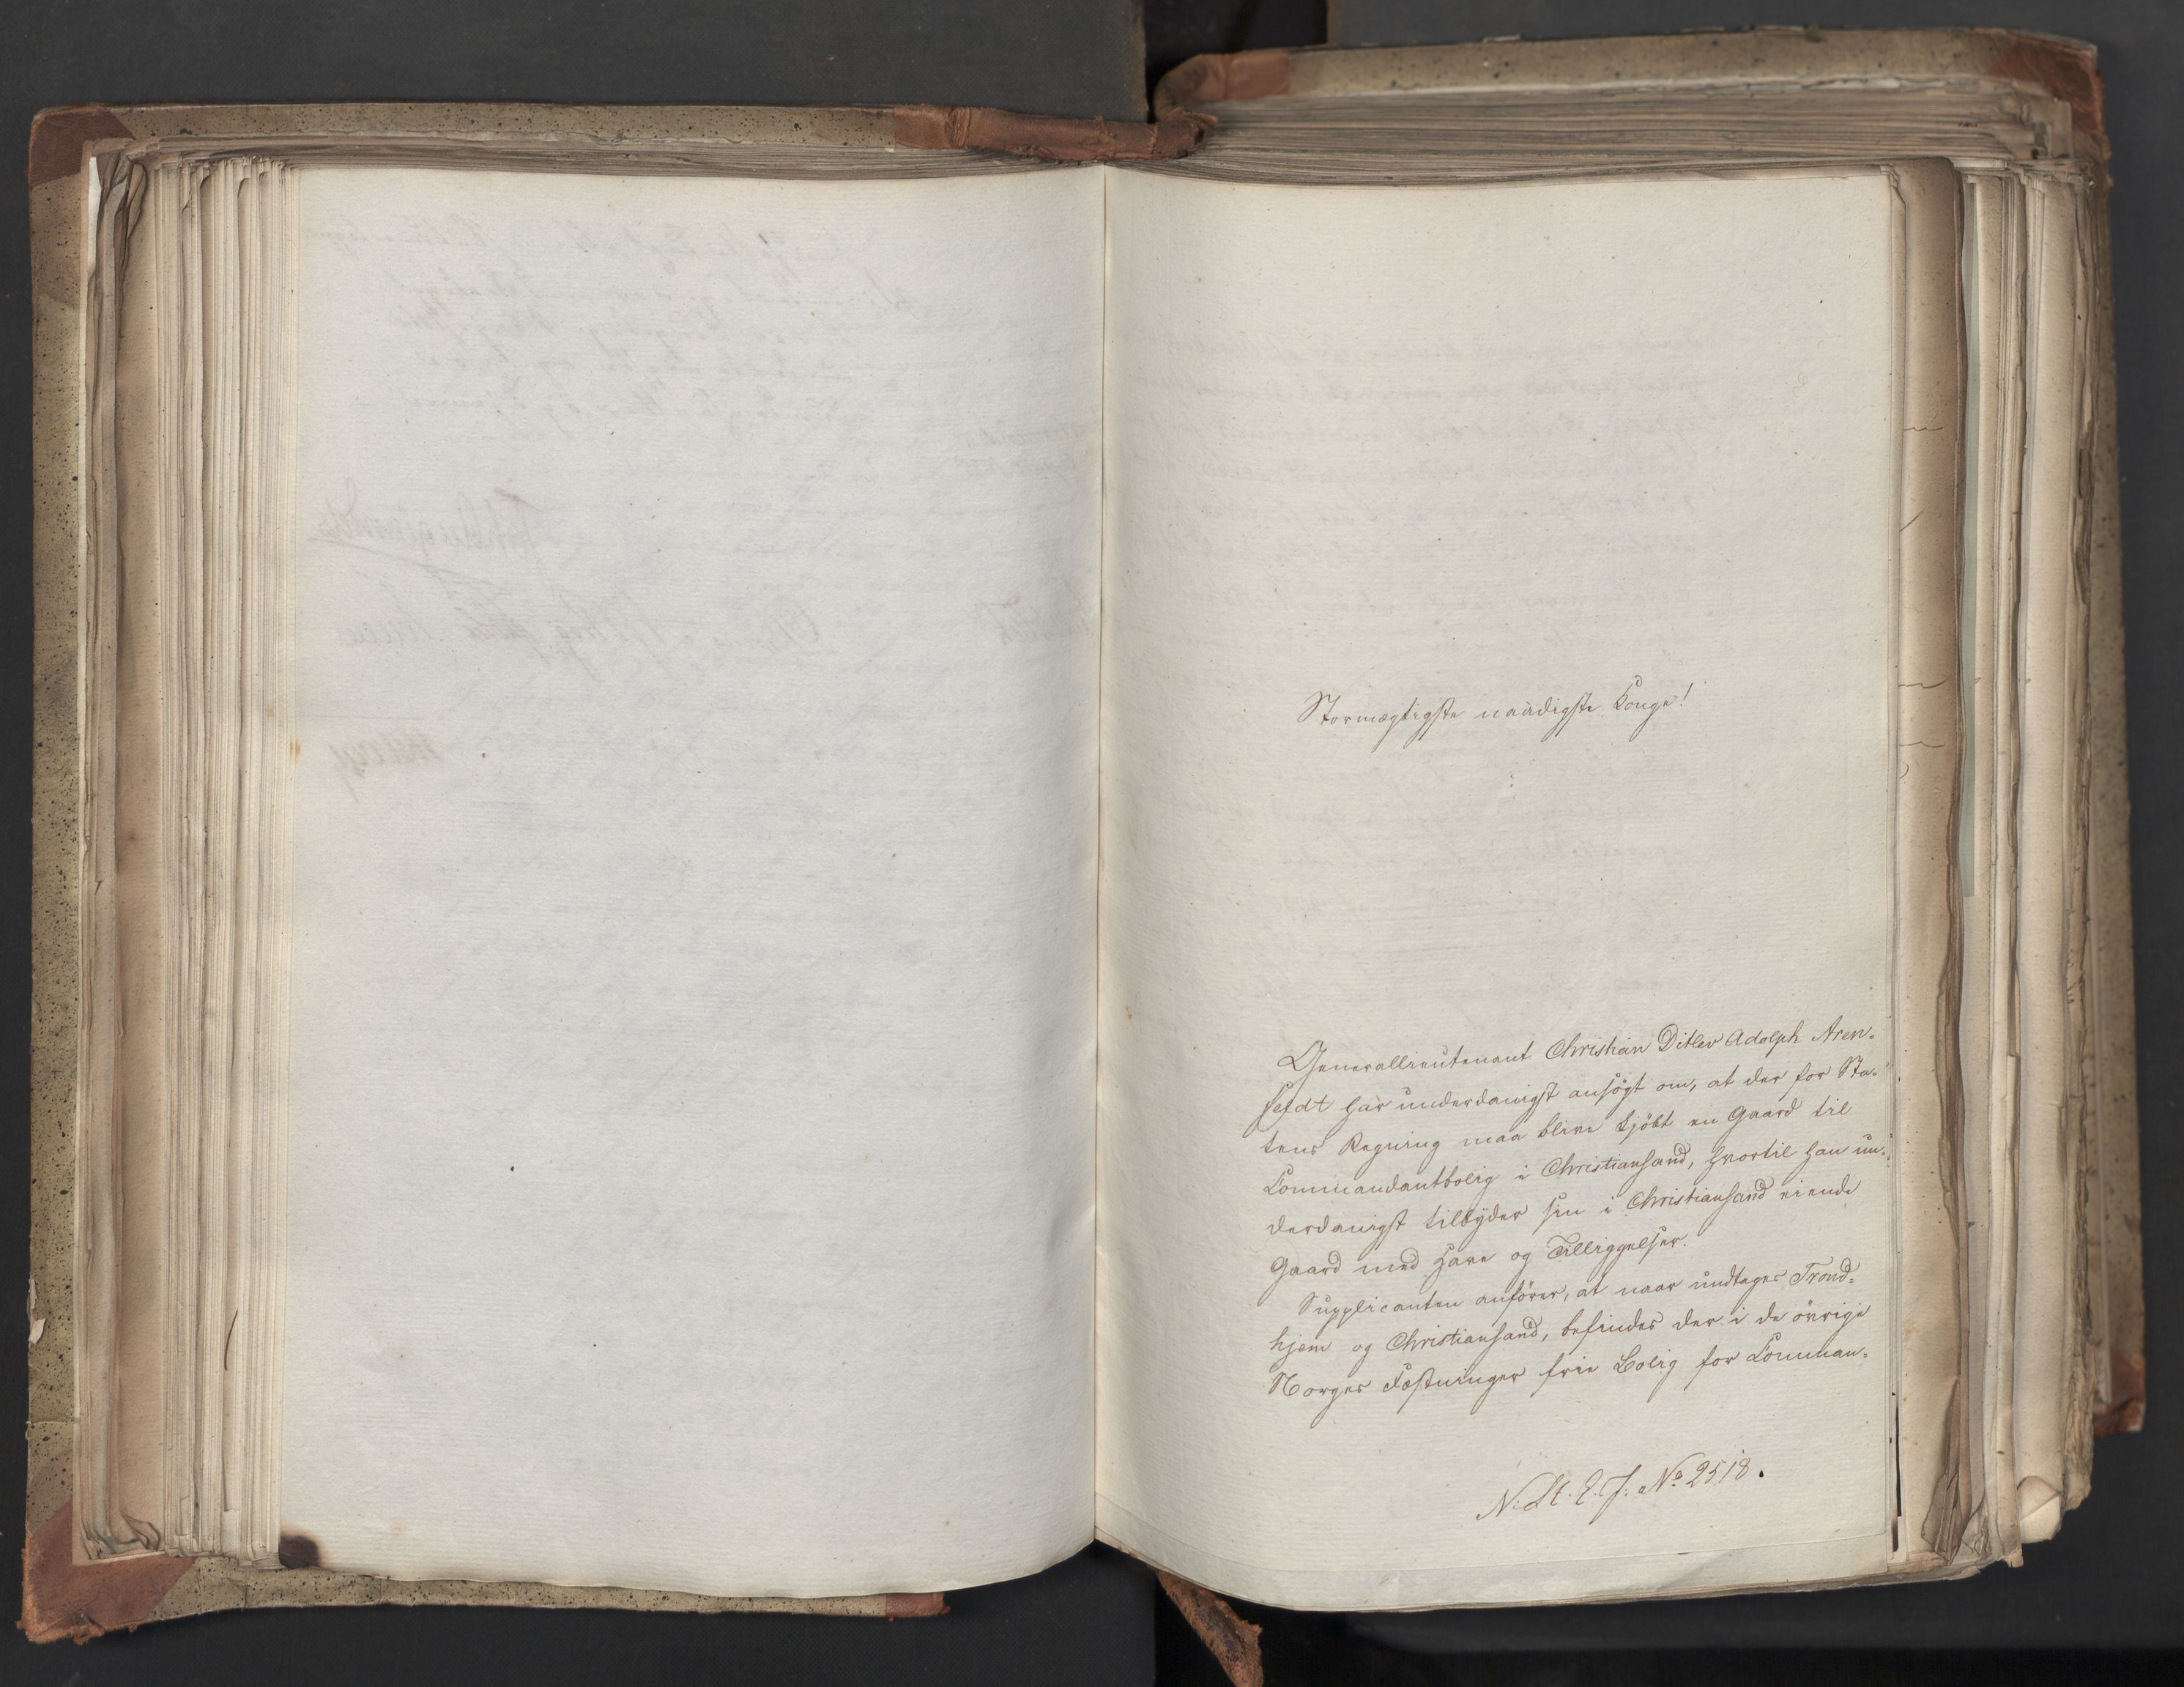 Stormægtigste naadigste Konge!
Generallieutenant Christian Ditlev Adolph Aren-
feldt har underdanigst ansögt om, at der for Sta-
tens Regning maa blive kjöbt en Gaard til
Commandantbolig i Christiansand, hvortil han un-
derdanigst tilbyder sin i Christiansand eiende
Gaard med Have og Tilliggelser.
Supplicanten anförer, at naar undtages Trond-
hjem og Christiansand, befindes der i de övrige
Norges Fæstninger frie Bolig for Comman-
N. St. E. J. No 2518.